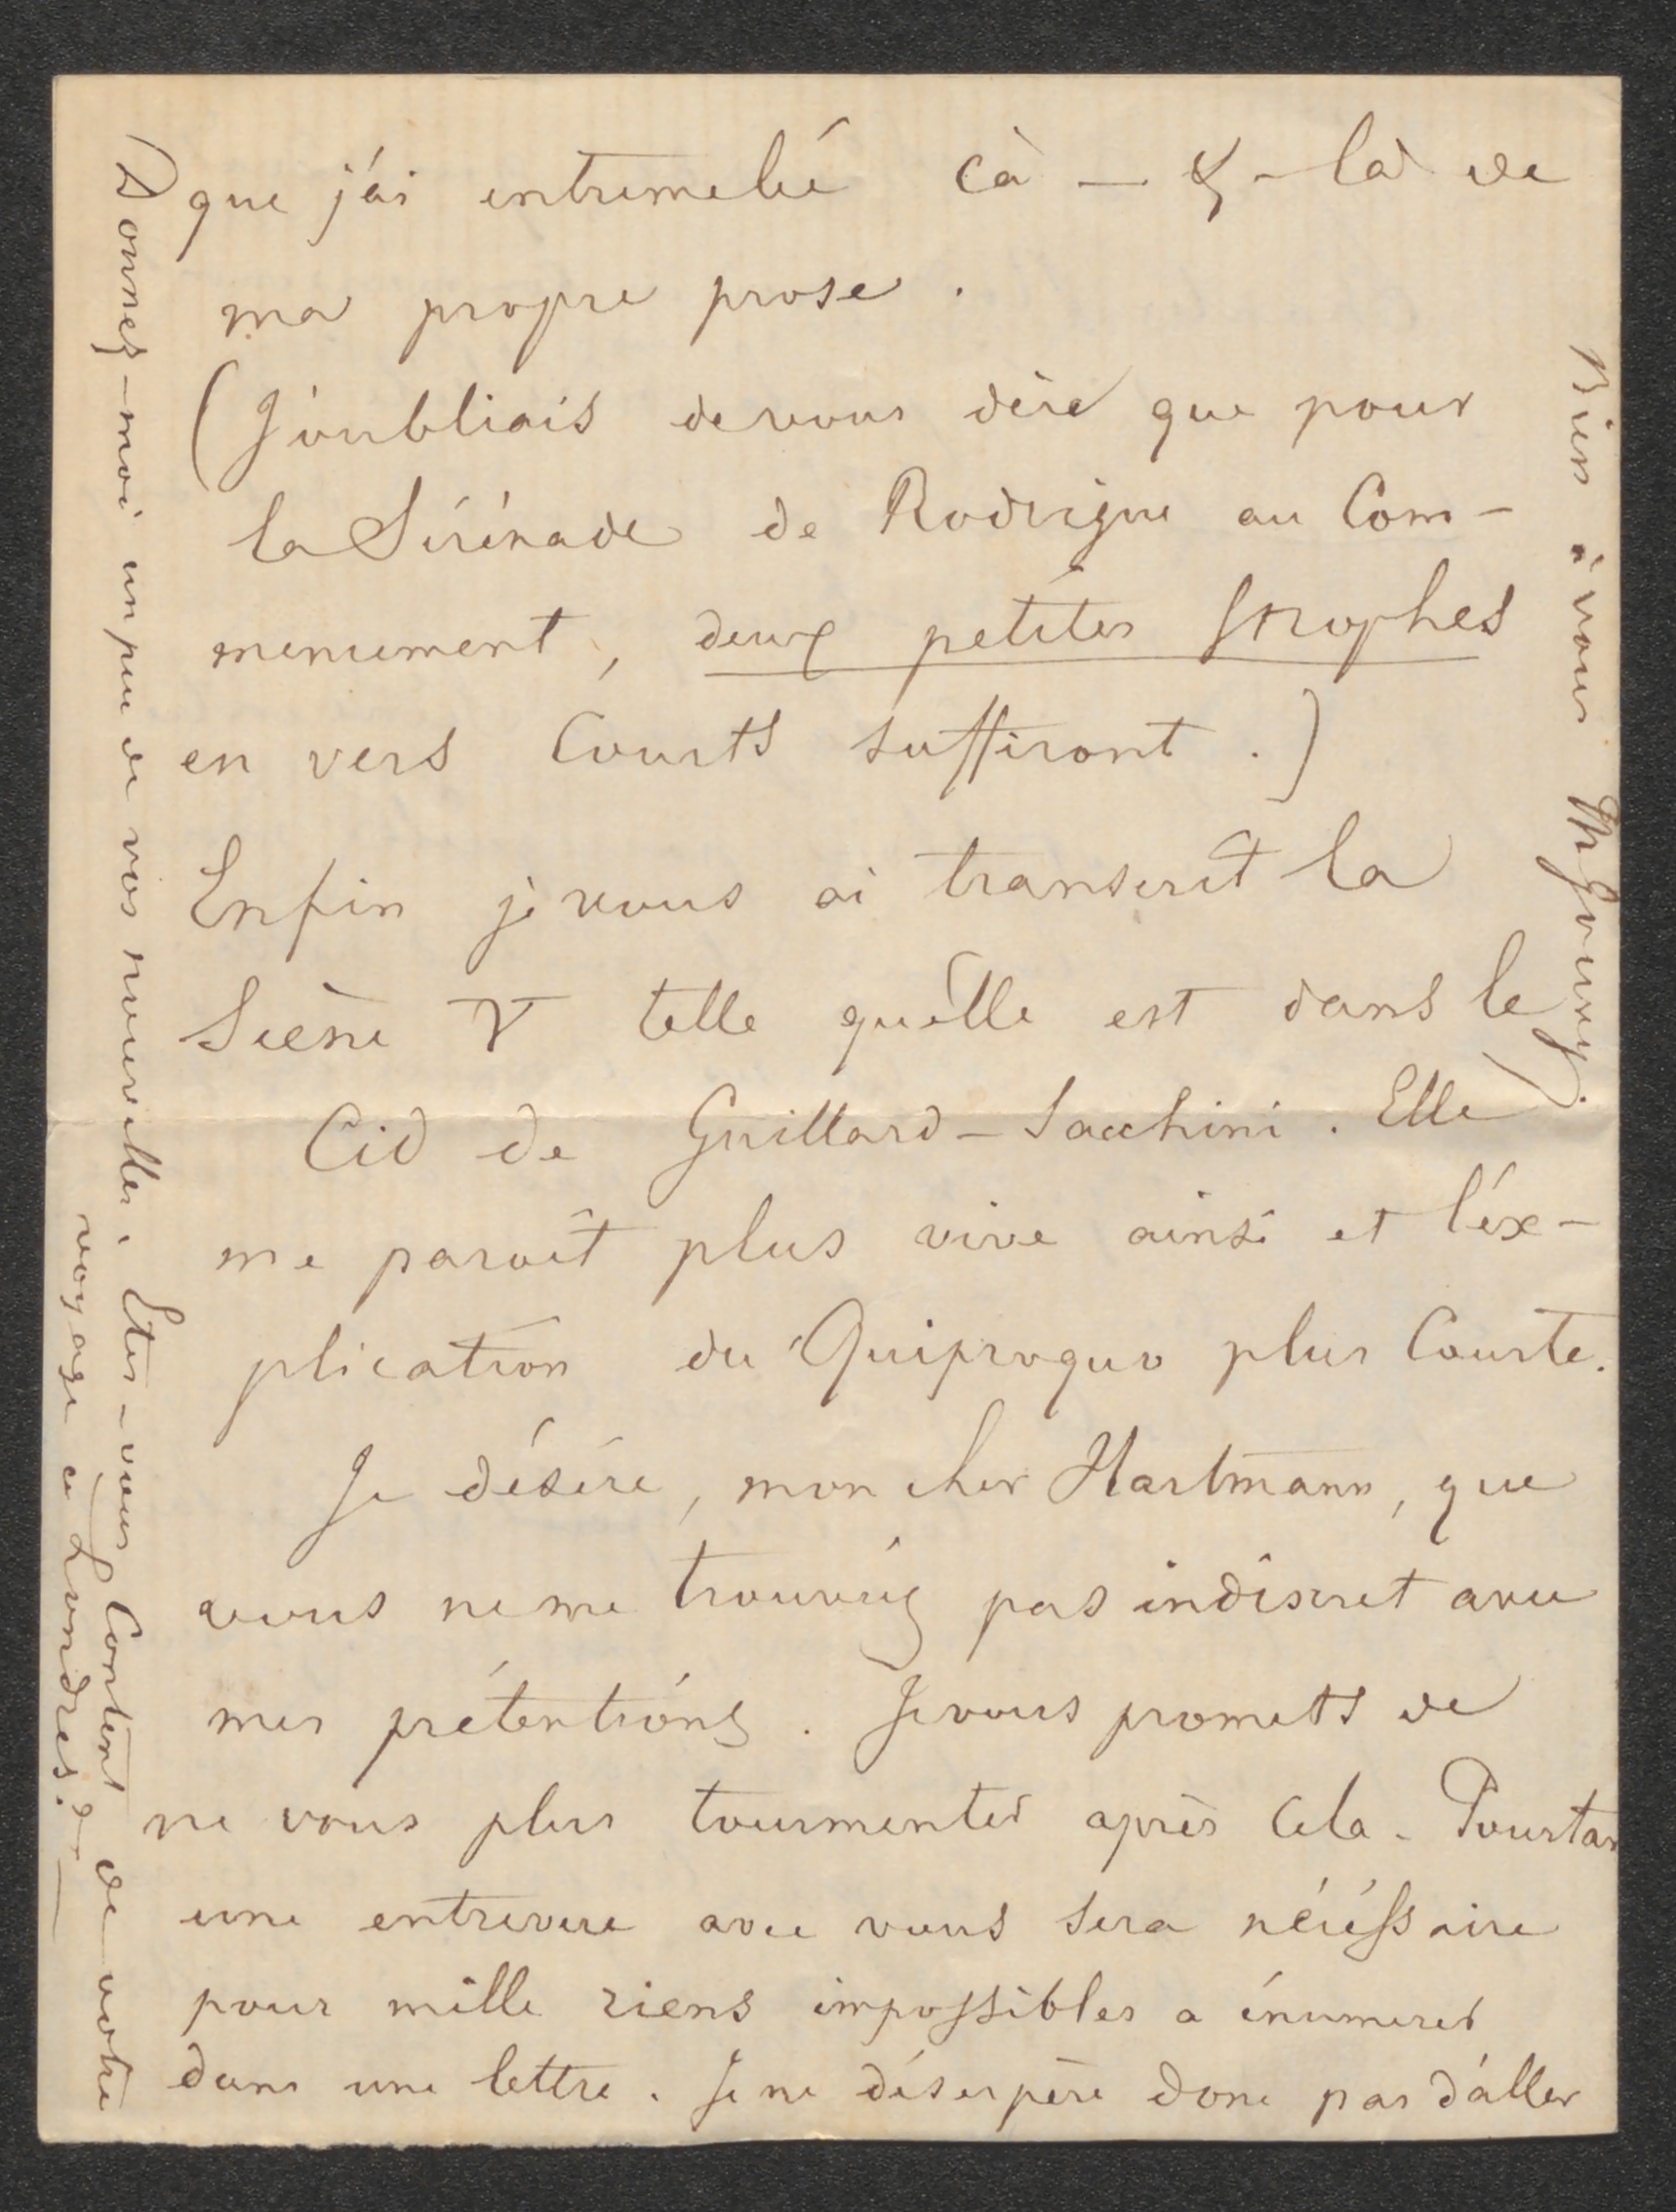 que j'ai entremelé cà - & - là de
ma propre prose.
(J'oubliais de vous dire que pour
la Sérénade de Rodrigue au Com-
mencement, deux petites strophes
en vers courts suffiront.)
Enfin je vous ai transcrit la
Scène V telle quelle est dans le
Cid de Guillard - Sacchini. Elle
me paroît plus vive ainsi et l'éx-
plication du Quiproquo plus Courte.
Je désire, mon cher Hartmann, que
vous ne me trouviez pas indiscret avec
mes prétentions. Je vous promets de
ne vous plus tourmenter après cela. Pourtan
une entrevue avec vous sera nécéssaire
pour mille riens impossibles a énumerer
dans une lettre. Je ne désespère donc pas d'aller
Donnez-moi un peu de vos nouvelles. Etes-vous Content de votre
voyage a Londres?
Bien à vous Th Gouvy.